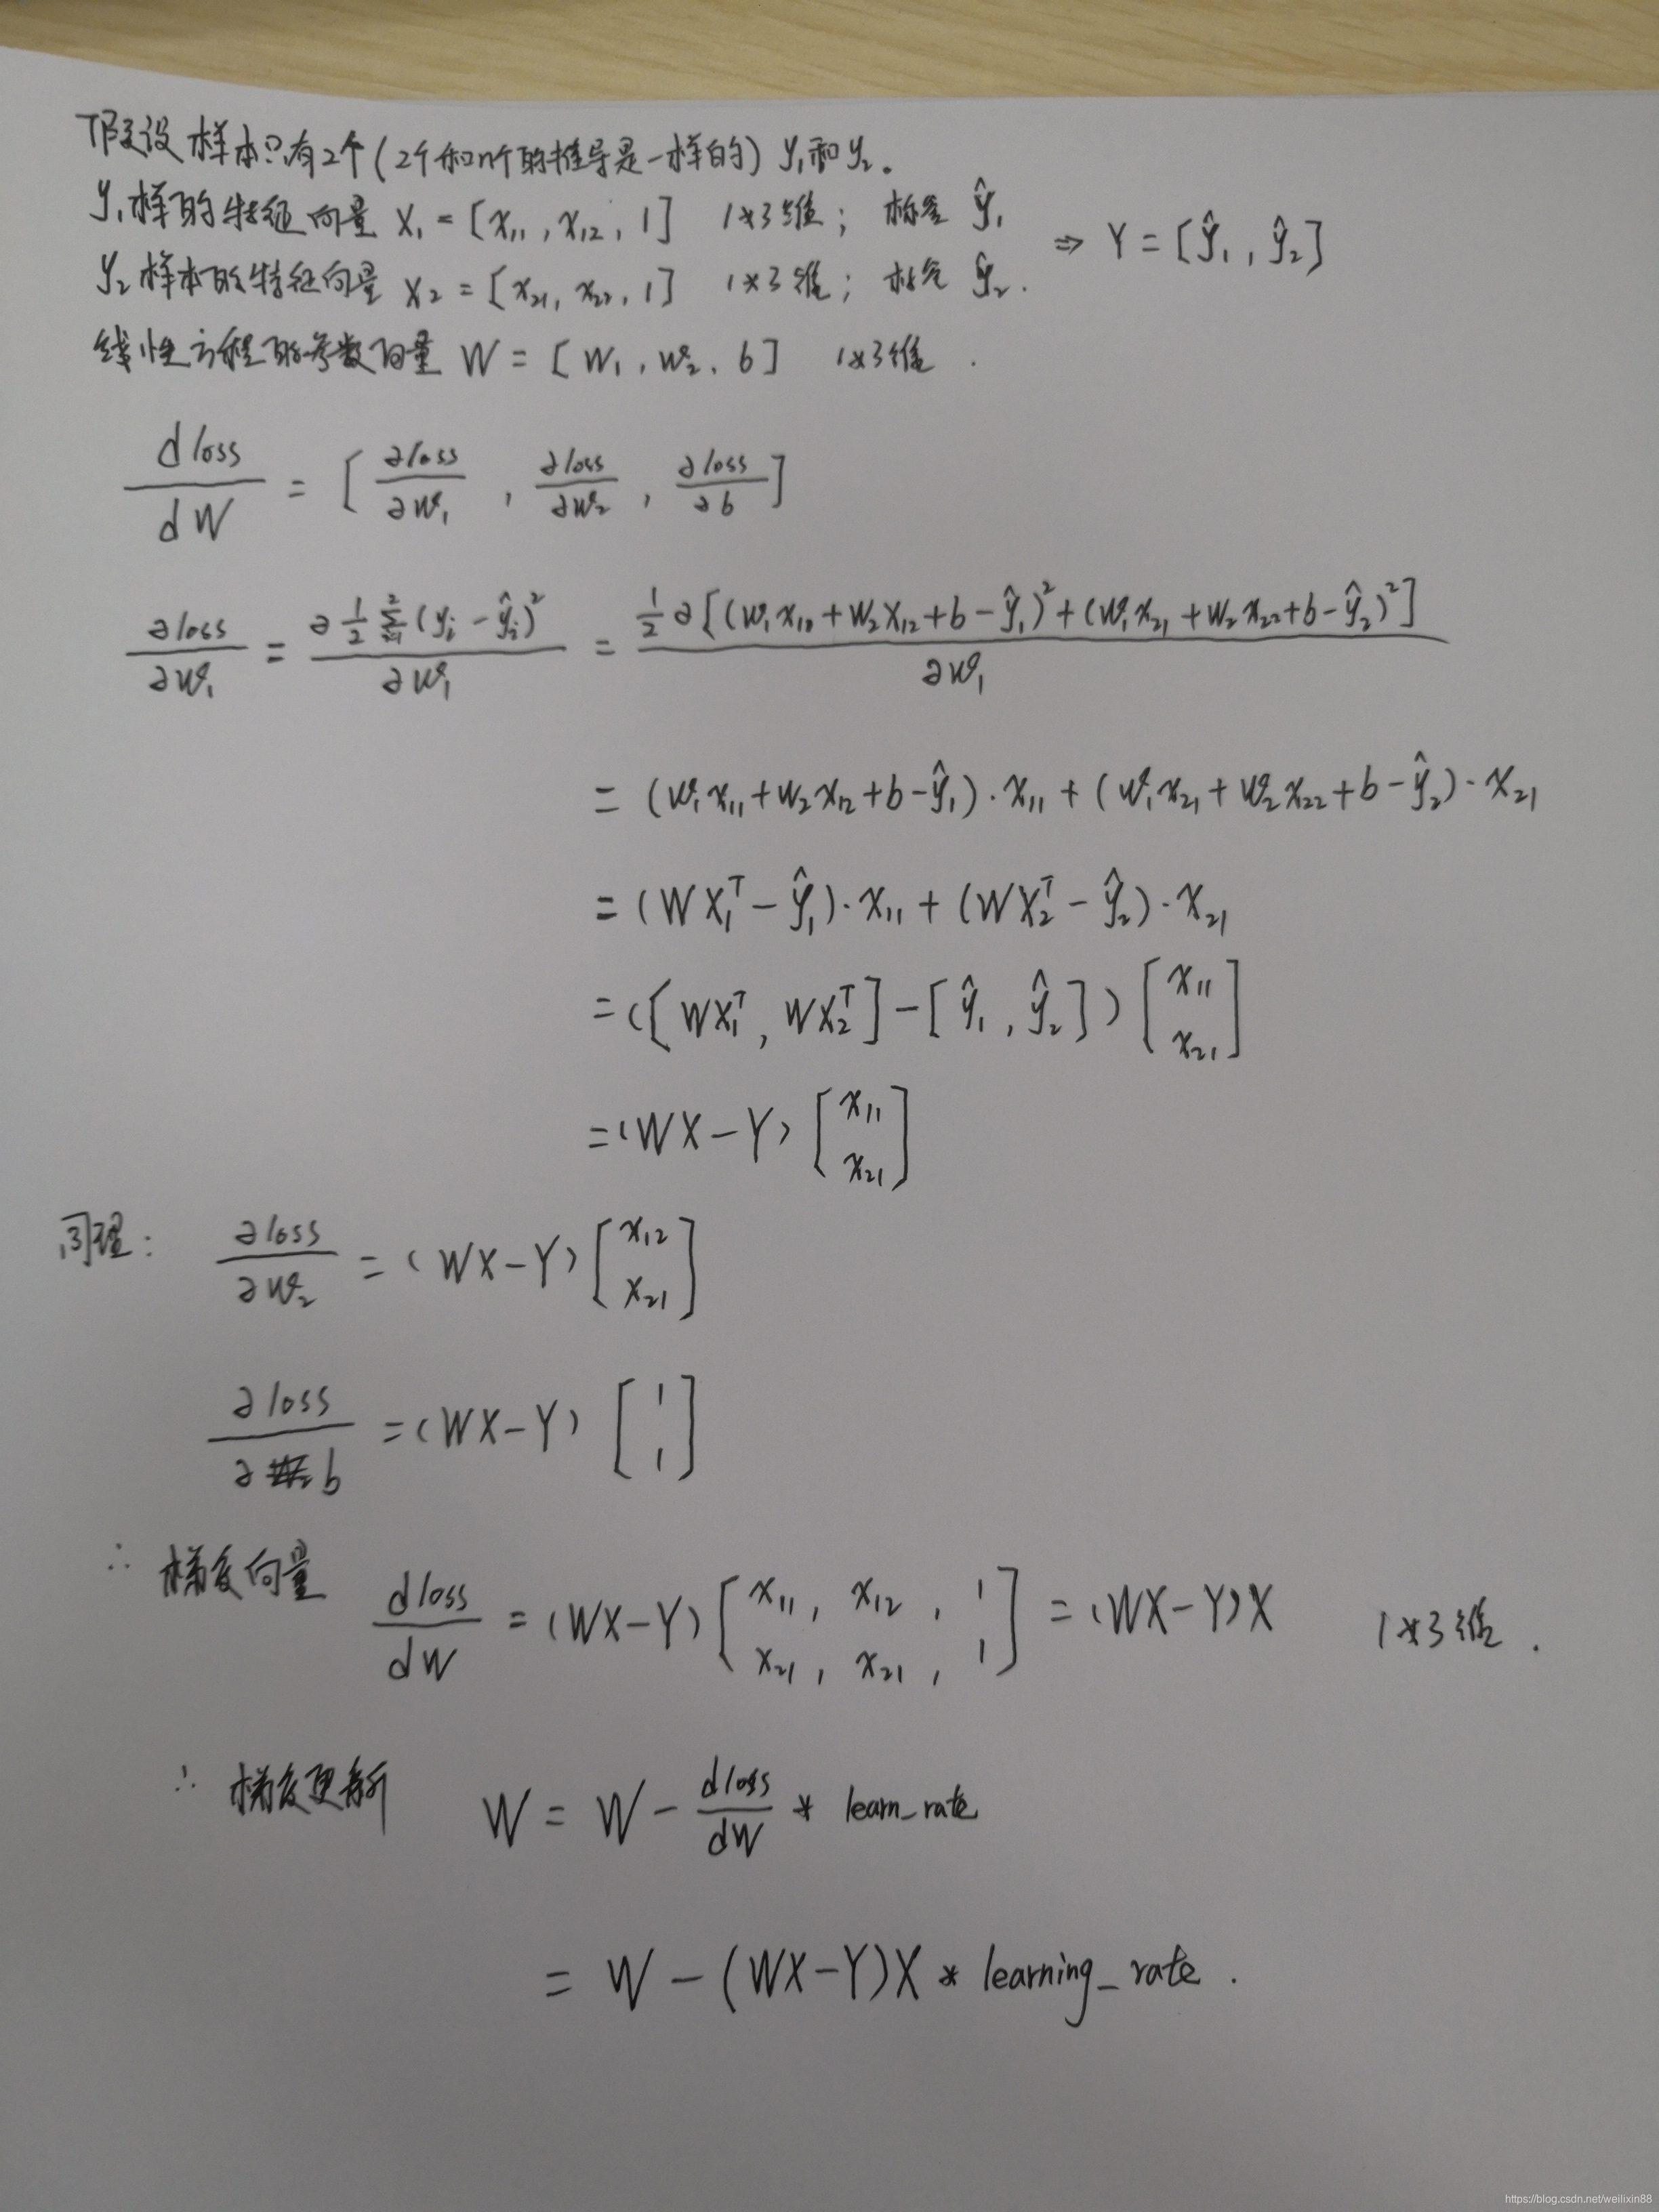 假设样本只有2个(2个和n个的推导是一样的) y₁和y₂。
y₁样的特征向量 X₁ = [x₁₁, x₁₂, 1] 1*3维; 标签 ŷ₁
⇒ Y = [ŷ₁, ŷ₂]
y₂样本的特征向量 X₂ = [x₂₁, x₂₂, 1] 1*3维; 标签 ŷ₂.
线性方程的参数向量 W = [w₁, w₂, b] 1*3维.
dloss/dW = [∂loss/∂w₁, ∂loss/∂w₂, ∂loss/∂b]
∂loss/∂w₁ = ∂ 1/2 Σ_{i=1}^{2} (yᵢ - ŷᵢ)² / ∂w₁ = 1/2 ∂[(w₁x₁₁+w₂x₁₂+b-ŷ₁)²+(w₁x₂₁+w₂x₂₂+b-ŷ₂)²] / ∂w₁
= (w₁x₁₁+w₂x₁₂+b-ŷ₁)·x₁₁+(w₁x₂₁+w₂x₂₂+b-ŷ₂)·x₂₁
= (WX₁ᵀ-ŷ₁)·x₁₁+(WX₂ᵀ-ŷ₂)·x₂₁
= ([WX₁ᵀ, WX₂ᵀ]-[ŷ₁, ŷ₂]) [x₁₁; x₂₁]
= (WX-Y) [x₁₁; x₂₁]
同理: ∂loss/∂w₂ = (WX-Y) [x₁₂; x₂₁]
∂loss/∂b = (WX-Y) [1; 1]
∴ 梯度向量 dloss/dW = (WX-Y) [x₁₁, x₁₂, 1; x₂₁, x₂₁, 1] = (WX-Y)X 1*3维.
∴ 梯度更新 W = W - dloss/dW * learn_rate
= W - (WX-Y)X * learning_rate.
https://blog.csdn.net/weilixin88